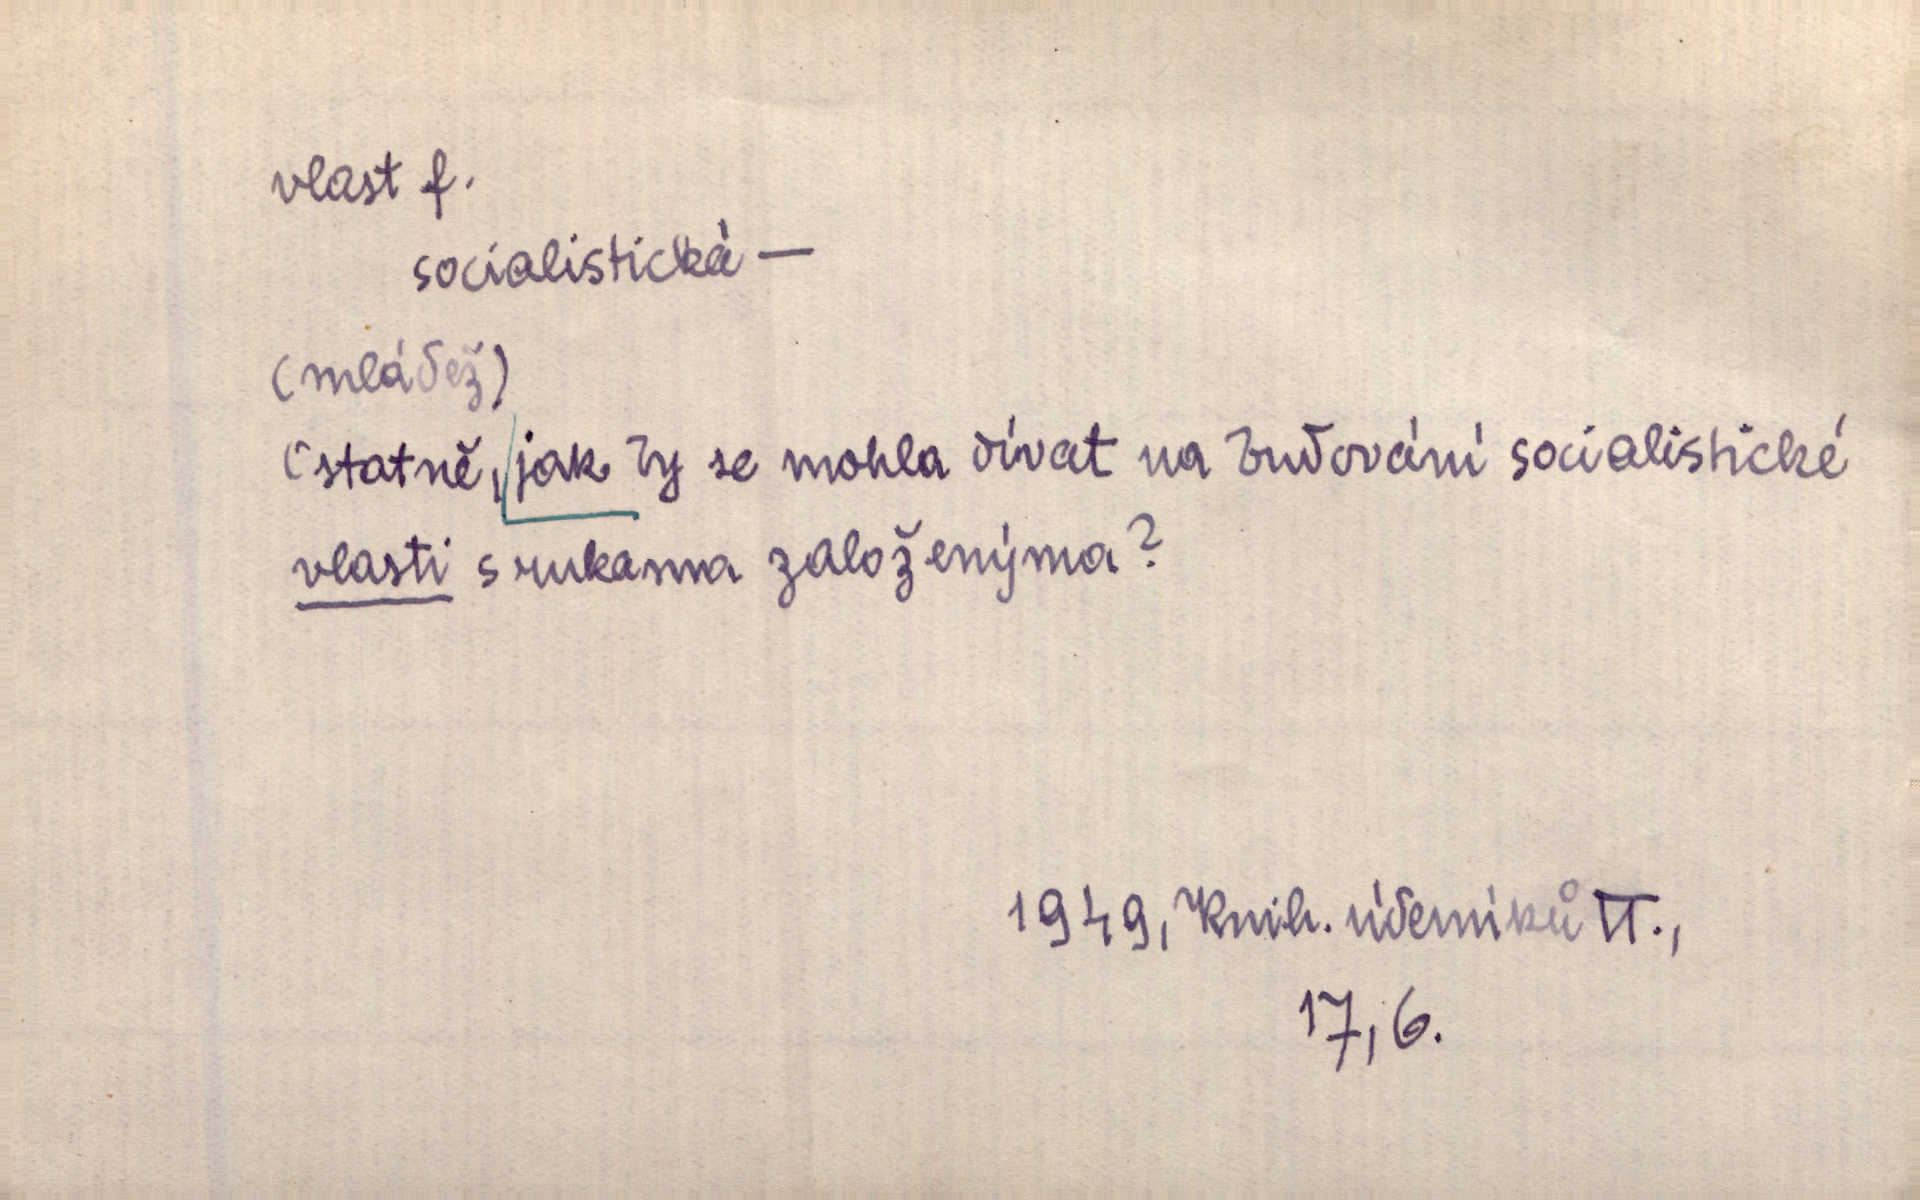 vlast f.
socialistická —
(mládež)
Ostatně, jak by se mohla dívat na budování socialistické
vlasti s rukama založenýma?
1949, Knih. úderníků II.,
17, 6.